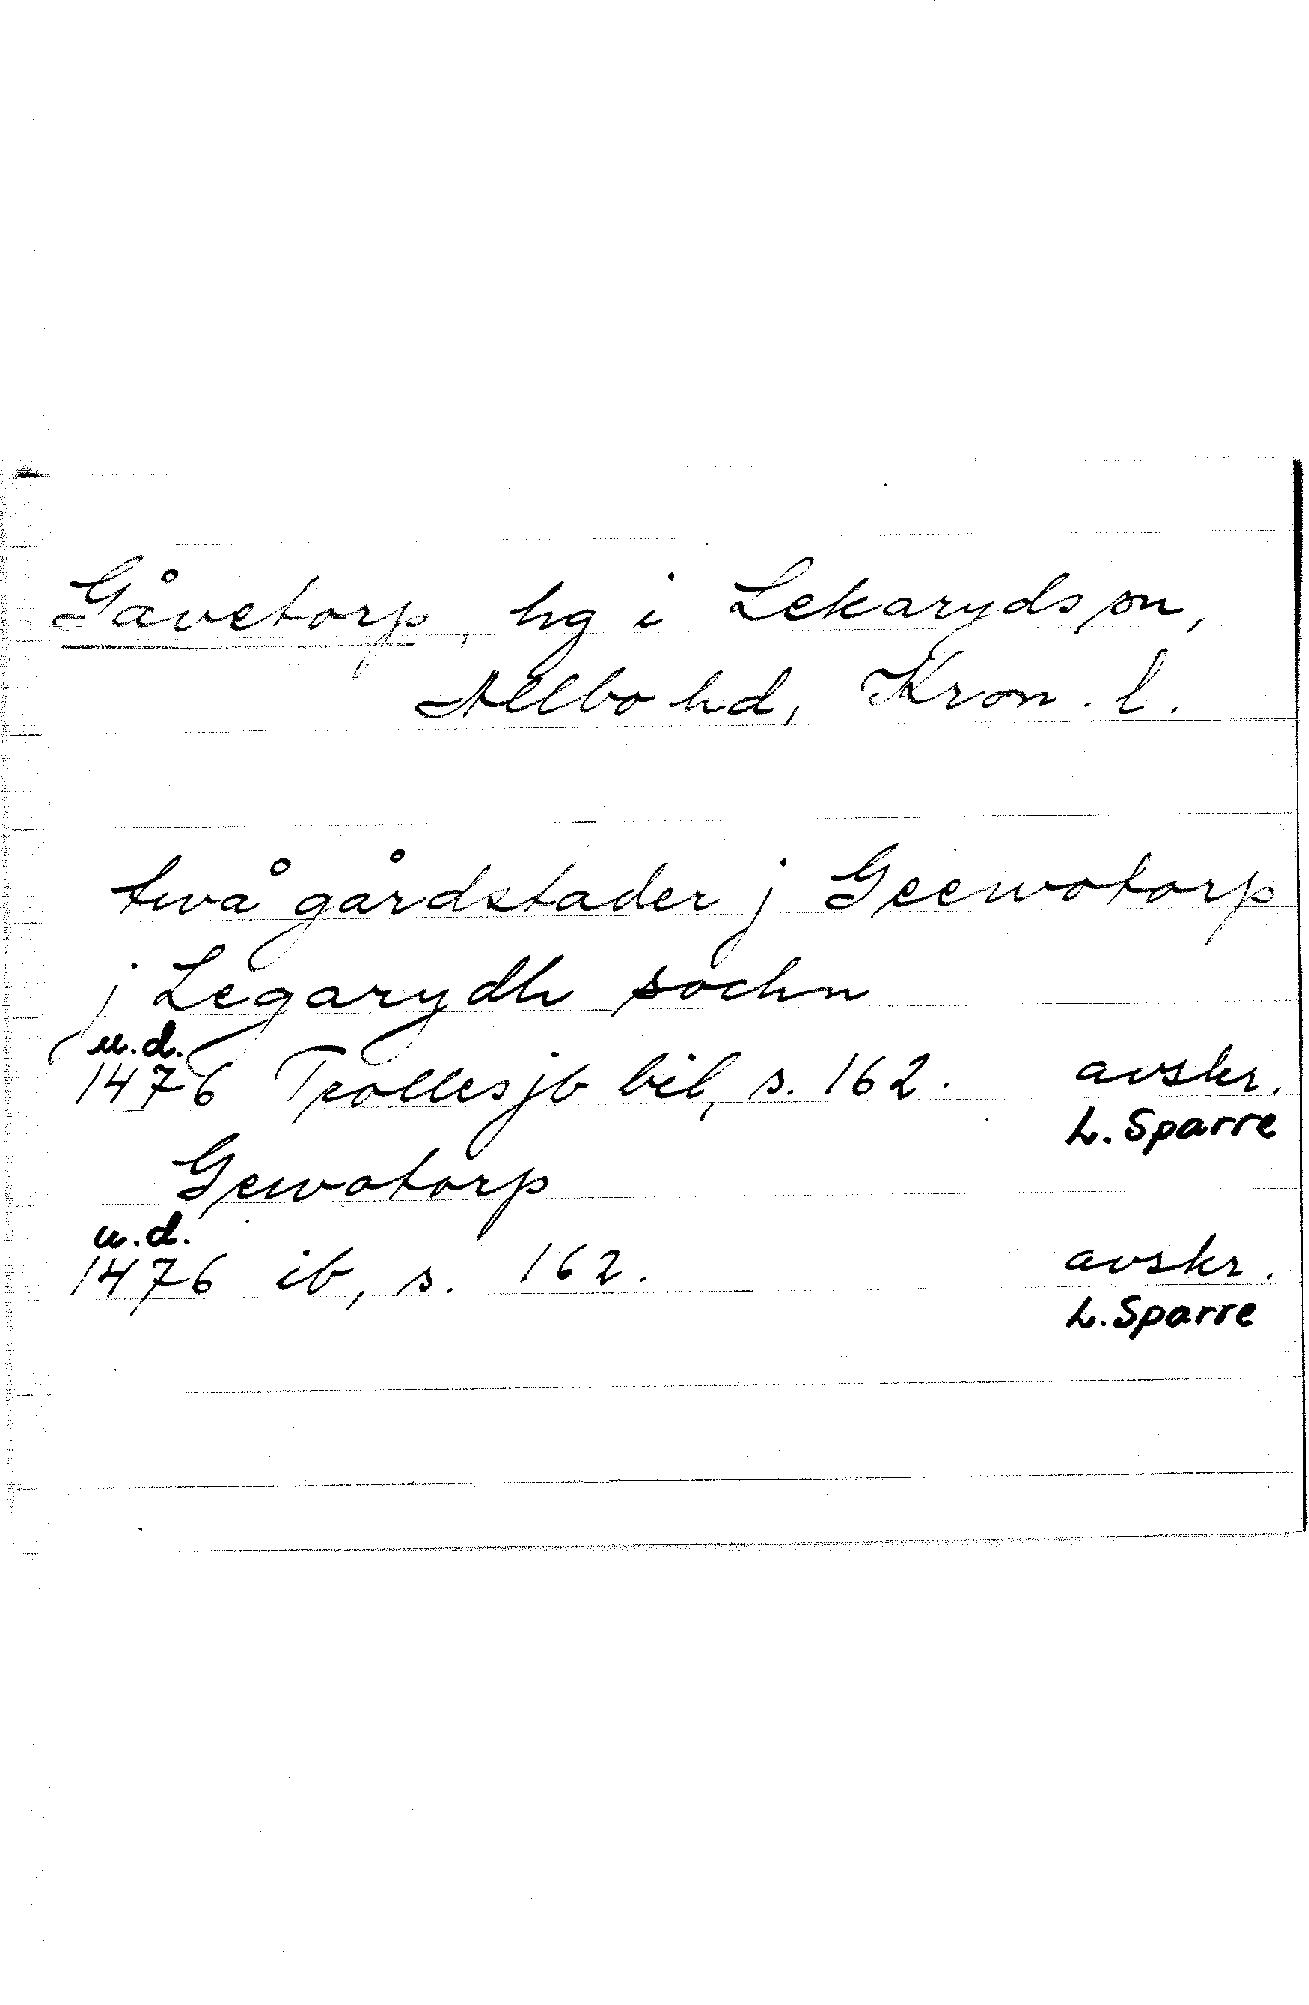 Gåvetorp, hg i Lekaryds sn,
Allbo hd, Kron. l.
twå gårdstader j Geewotorp
j Legarydh sochn
u.d.
1476 Trolles jb bil, s. 162. avskr.
L. Sparre
Gewotorp
u.d.
1476 ib, s. 162. avskr.
L. Sparre